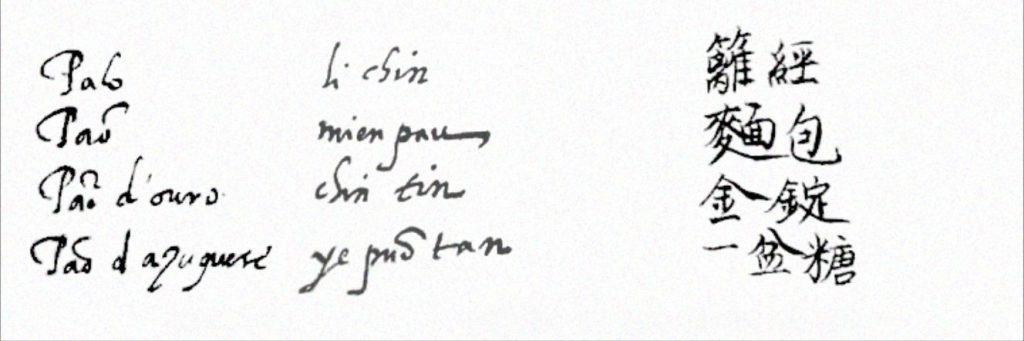 Palo li chin 籬經
Paõ mien pau 麵包
Paõ d'ouro chin tin 金錠
Paõ d açuquere ye puõ tan 一盆糖